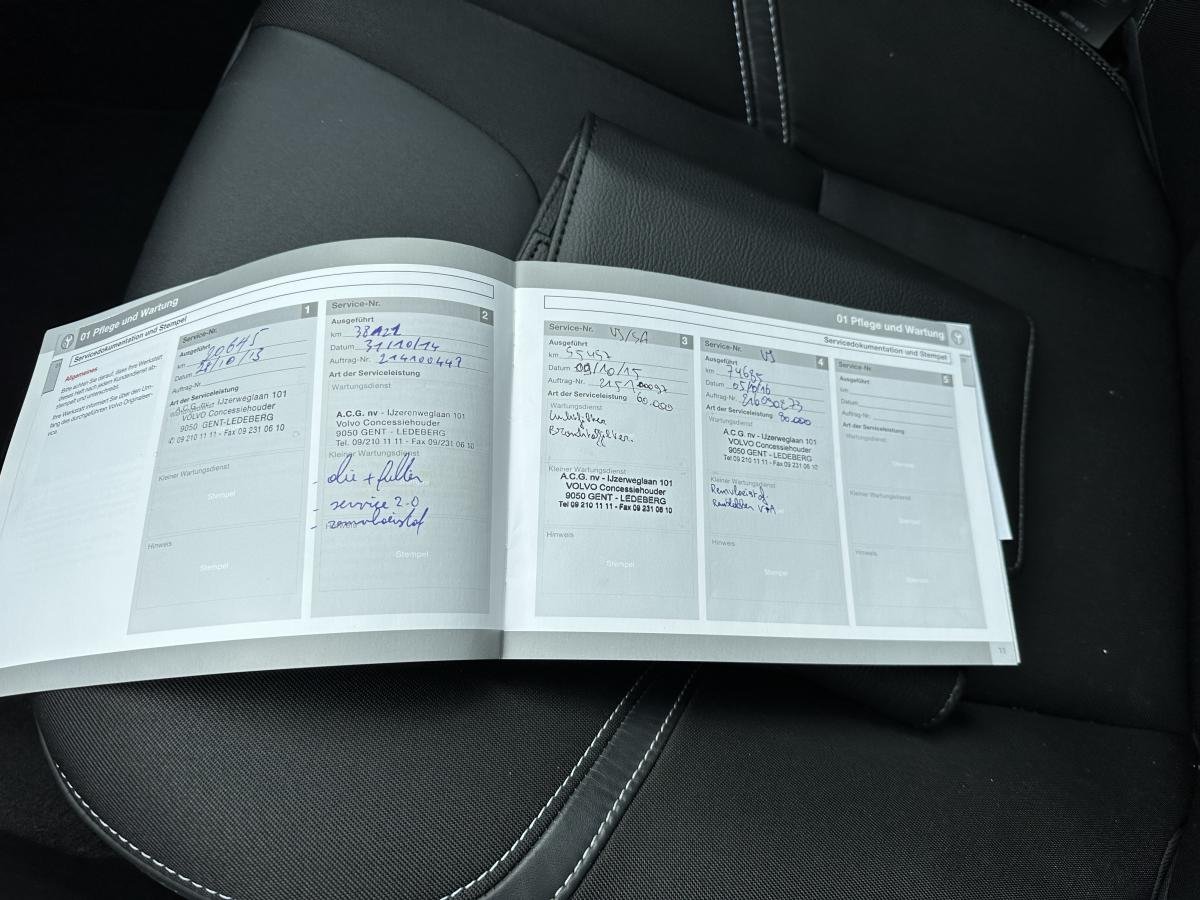 01 Pflege und Wartung
Servicedokumentation und Stempel
Allgemeines
Bitte achten Sie darauf, dass Ihre Werkstatt
dieses Heft nach jedem Kundendienst ab-
stempelt und unterschreibt.
Ihre Werkstatt informiert Sie über den Um-
fang des durchgeführten Volvo Originalser-
vice.
Service-Nr. 1
Ausgeführt
km 20645
Datum 28/10/13
Auftrag-Nr.
Art der Serviceleistung
A.C.G. nv - IJzerenweglaan 101
VOLVO Concessiehouder
9050 GENT-LEDEBERG
✆ 09 210 11 11 - Fax 09 231 06 10
Kleiner Wartungsdienst
Stempel
Hinweis
Stempel
Service-Nr. 2
Ausgeführt
km 38121
Datum 31/10/14
Auftrag-Nr.
Art der Serviceleistung
Wartungsdienst
A.C.G. nv - IJzerenweglaan 101
Volvo Concessiehouder
9050 GENT - LEDEBERG
Tel. 09/210 11 11 - Fax 09/231 06 10
Kleiner Wartungsdienst
- olie + filter
- service 2.0
- remvloeistof
Stempel
01 Pflege und Wartung
Servicedokumentation und Stempel
Service-Nr. V3/SA 3
Ausgeführt
km 55452
Datum 09/10/15
Auftrag-Nr. 215100097
Art der Serviceleistung 60.000
Wartungsdienst
Luchtfilter
Brandstoffilter.
Kleiner Wartungsdienst
A.C.G. nv - IJzerweglaan 101
VOLVO Concessiehouder
9050 GENT - LEDEBERG
Tel 09 210 11 11 - Fax 09 231 06 10
Hinweis
Stempel
Service-Nr. V3 4
Ausgeführt
km 74685
Datum 05/10/16
Auftrag-Nr.
Art der Serviceleistung 80.000
Wartungsdienst
A.C.G. nv - IJzerweglaan 101
VOLVO Concessiehouder
9050 GENT - LEDEBERG
Tel 09 210 11 11 - Fax 09 231 06 10
Kleiner Wartungsdienst
Remvloeistof
Hinweis
Stempel
Service-Nr. 5
Ausgeführt
km
Datum
Auftrag-Nr.
Art der Serviceleistung
Wartungsdienst
Stempel
Kleiner Wartungsdienst
Stempel
Hinweis
Stempel
11